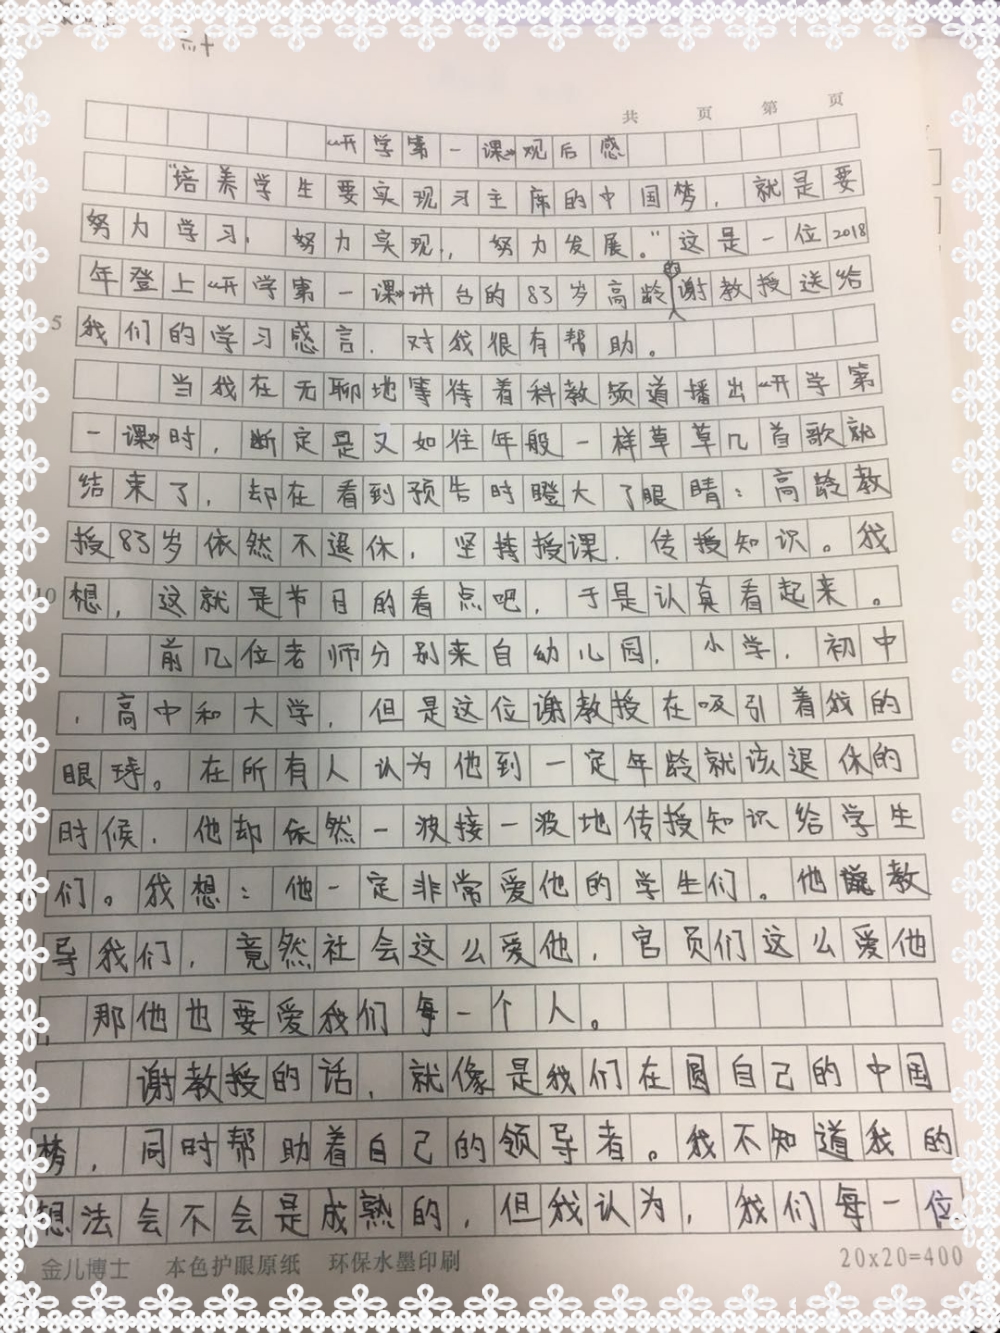 共 页 第 页
“开学第一课”观后感
“培养学生要实现习主席的中国梦，就是要
努力学习，努力实现，努力发展。”这是一位2018
年登上“开学第一课”讲台的83岁高龄的谢教授送给
5 我们的学习感言，对我很有帮助。
当我在无聊地等待着科教频道播出“开学第
一课”时，断定是又如往年般一样草草几首歌就
结束了，却在看到预告时瞪大了眼睛：高龄教
授83岁依然不退休，坚持授课，传授知识。我
10 想，这就是节目的看点吧，于是认真看起来。
前几位老师分别来自幼儿园，小学，初中
，高中和大学，但是这位谢教授在吸引着我的
眼球。在所有人认为他到一定年龄就该退休的
时候，他却依然一波接一波地传授知识给学生
们。我想：他一定非常爱他的学生们。他教
导我们，竟然社会这么爱他，官员们这么爱他
，那他也要爱我们每一个人。
谢教授的话，就像是我们在圆自己的中国
梦，同时帮助着自己的领导者。我不知道我的
想法会不会是成熟的，但我认为，我们每一位
金儿博士 本色护眼原纸 环保水墨印刷 20x20=400